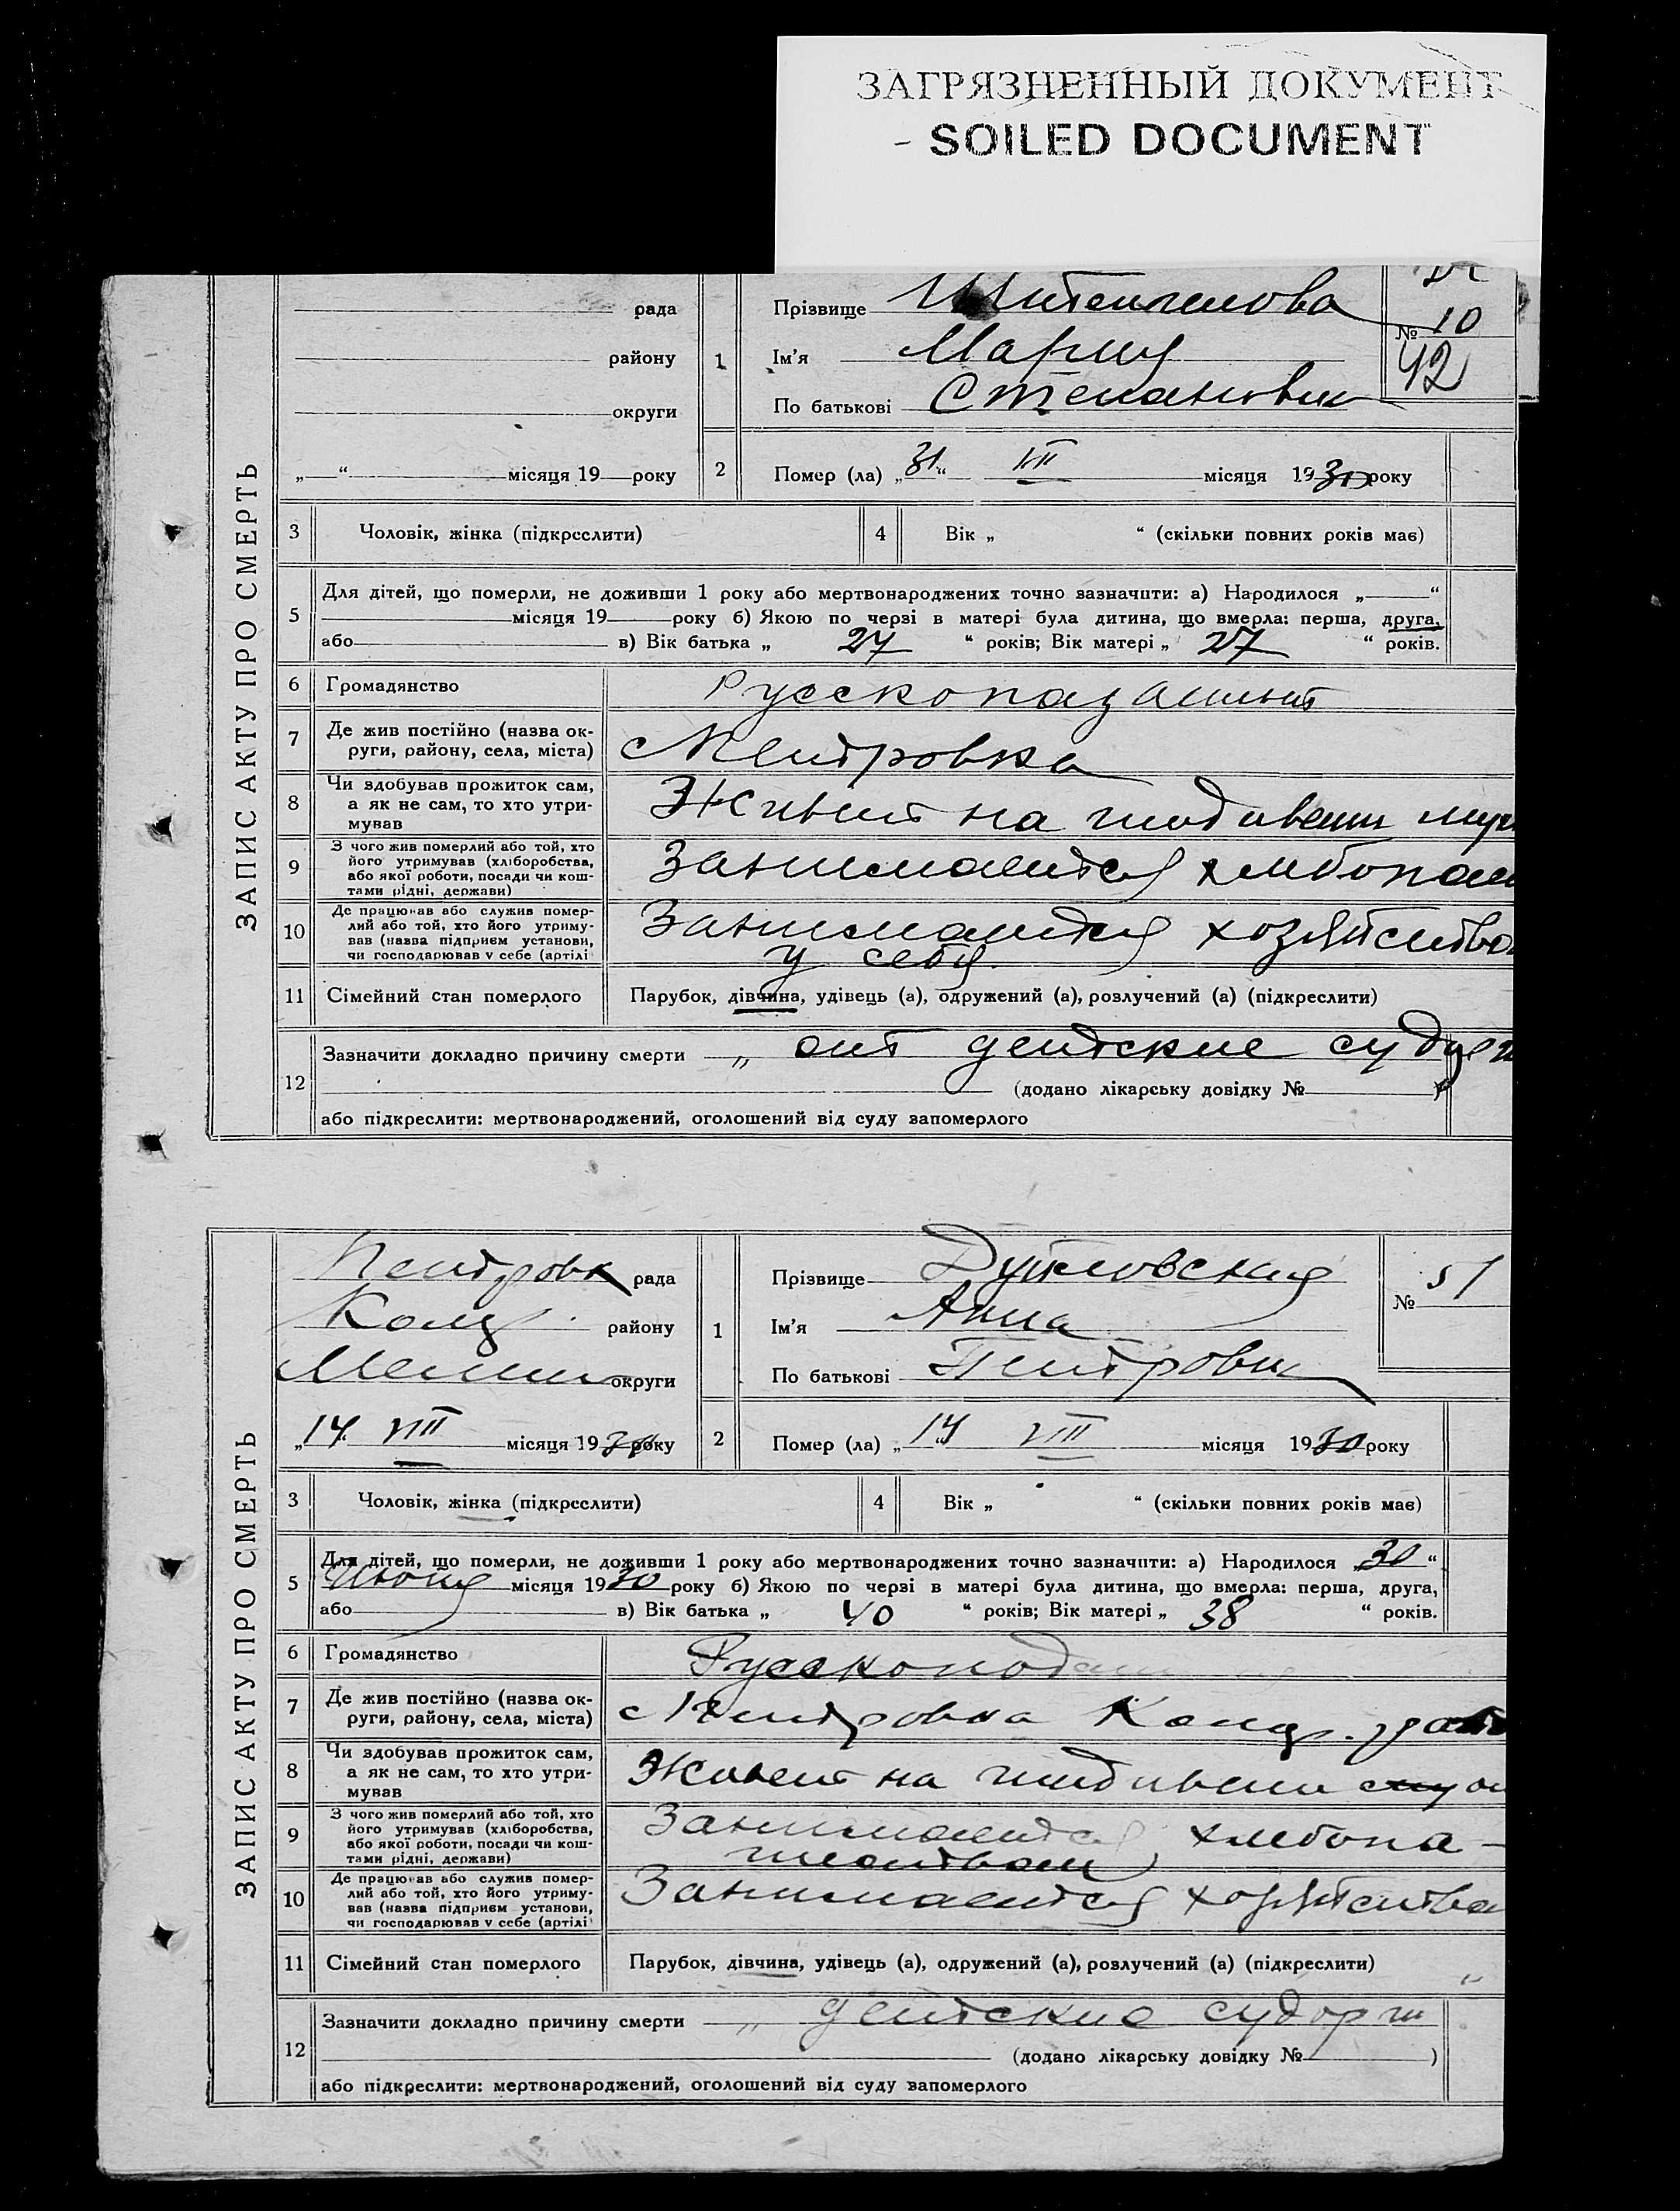 ЗАГРЯЗНЕННЫЙ ДОКУМЕНТ
- SOILED DOCUMENT
ЗАПИС АКТУ ПРО СМЕРТЬ
рада
району
округи
„ “ місяця 19 року
1
Прізвище
Ім’я Мария
По батькові Степановн
№ 10
42
2
Помер (ла) „31“ місяця 1930 року
3 Чоловік, жінка (підкреслити)
4 Вік „ “ (скільки повних років має)
5
Для дітей, що померли, не доживши 1 року або мертвонароджених точно зазначити: а) Народилося „ “
місяця 19 року б) Якою по черзі в матері була дитина, що вмерла: перша, друга,
або в) Вік батька „ 27 “ років; Вік матері „ 27 “ років.
6 Громадянство
7 Де жив постійно (назва ок-
руги, району, села, міста)
с Петровка
8 Чи здобував прожиток сам,
а як не сам, то хто утри-
мував
Живет на
9 З чого жив померлий або той, хто
його утримував (хліборобства,
або якої роботи, посади чи кош-
тами рідні, держави)
Занимается хлебопаш
10 Де працював або служив помер-
лий або той, хто його утриму-
вав (назва підприєм установи,
чи господарював у себе (артілі
Занимается хозяйство
у себя
11 Сімейний стан померлого
Парубок, дівчина, удівець (а), одружений (а), розлучений (а) (підкреслити)
12
Зазначити докладно причину смерти „ от детские судорг
(додано лікарську довідку № )
або підкреслити: мертвонароджений, оголошений від суду запомерлого
ЗАПИС АКТУ ПРО СМЕРТЬ
Петровк рада
району
округи
„14“ VIII місяця 1930 року
1
Прізвище
Ім’я Анна
По батькові Петровн
№ 51
2
Помер (ла) „14“ VIII місяця 1930 року
3 Чоловік, жінка (підкреслити)
4 Вік „ “ (скільки повних років має)
5
Для дітей, що померли, не доживши 1 року або мертвонароджених точно зазначити: а) Народилося „30“
Июня місяця 1930 року б) Якою по черзі в матері була дитина, що вмерла: перша, друга,
або в) Вік батька „ 40 “ років; Вік матері „ 38 “ років.
6 Громадянство
7 Де жив постійно (назва ок-
руги, району, села, міста)
с Петровка
8 Чи здобував прожиток сам,
а як не сам, то хто утри-
мував
Живет на
9 З чого жив померлий або той, хто
його утримував (хліборобства,
або якої роботи, посади чи кош-
тами рідні, держави)
Занимается хлебопа-
шеством
10 Де працював або служив помер-
лий або той, хто його утриму-
вав (назва підприєм установи,
чи господарював у себе (артілі
Занимается хозяйства
11 Сімейний стан померлого
Парубок, дівчина, удівець (а), одружений (а), розлучений (а) (підкреслити)
12
Зазначити докладно причину смерти „ детские судорги
(додано лікарську довідку № )
або підкреслити: мертвонароджений, оголошений від суду запомерлого